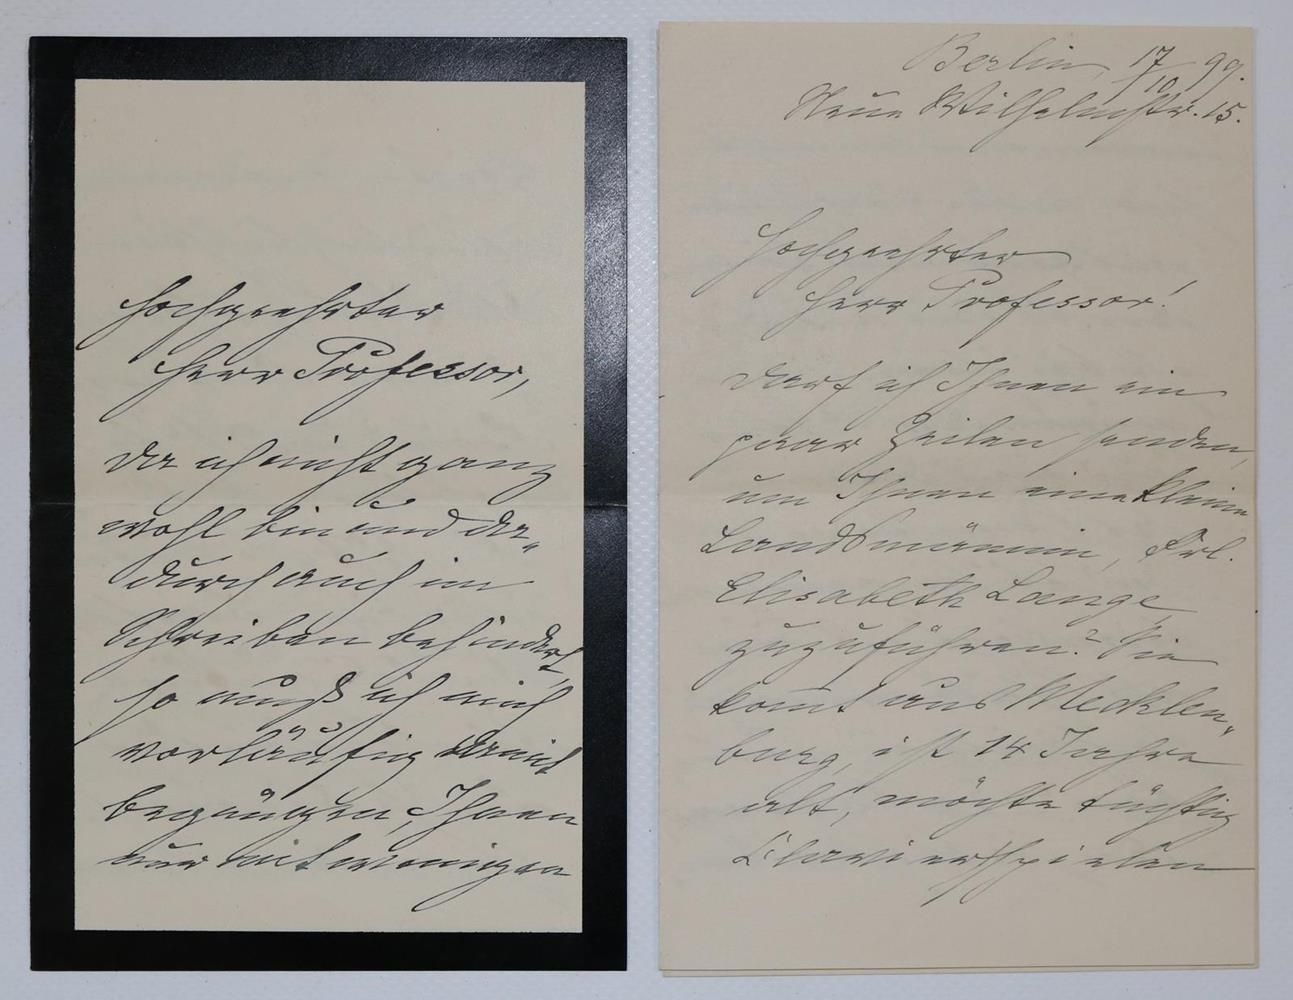 Hochgeehrter
Herr Professor,
da ich nicht ganz
wohl bin und da„
durch auch im
Schreiben behindert,
so muß ich mich
vorläufig damit
begnügen, Ihnen
nur mit wenigen
Berlin, 17/10 99.
Neue Wilhelmstr. 15.
Hochgeehrter
Herr Professor!
Darf ich Ihnen ein
paar Zeilen senden,
um Ihnen eine kleine
Landsmännin, Frl.
Elisabeth Lange,
zuzuführen? Sie
komt aus Mecklen„
burg, ist 14 Jahre
alt, möchte tüchtig
Clavierspielen